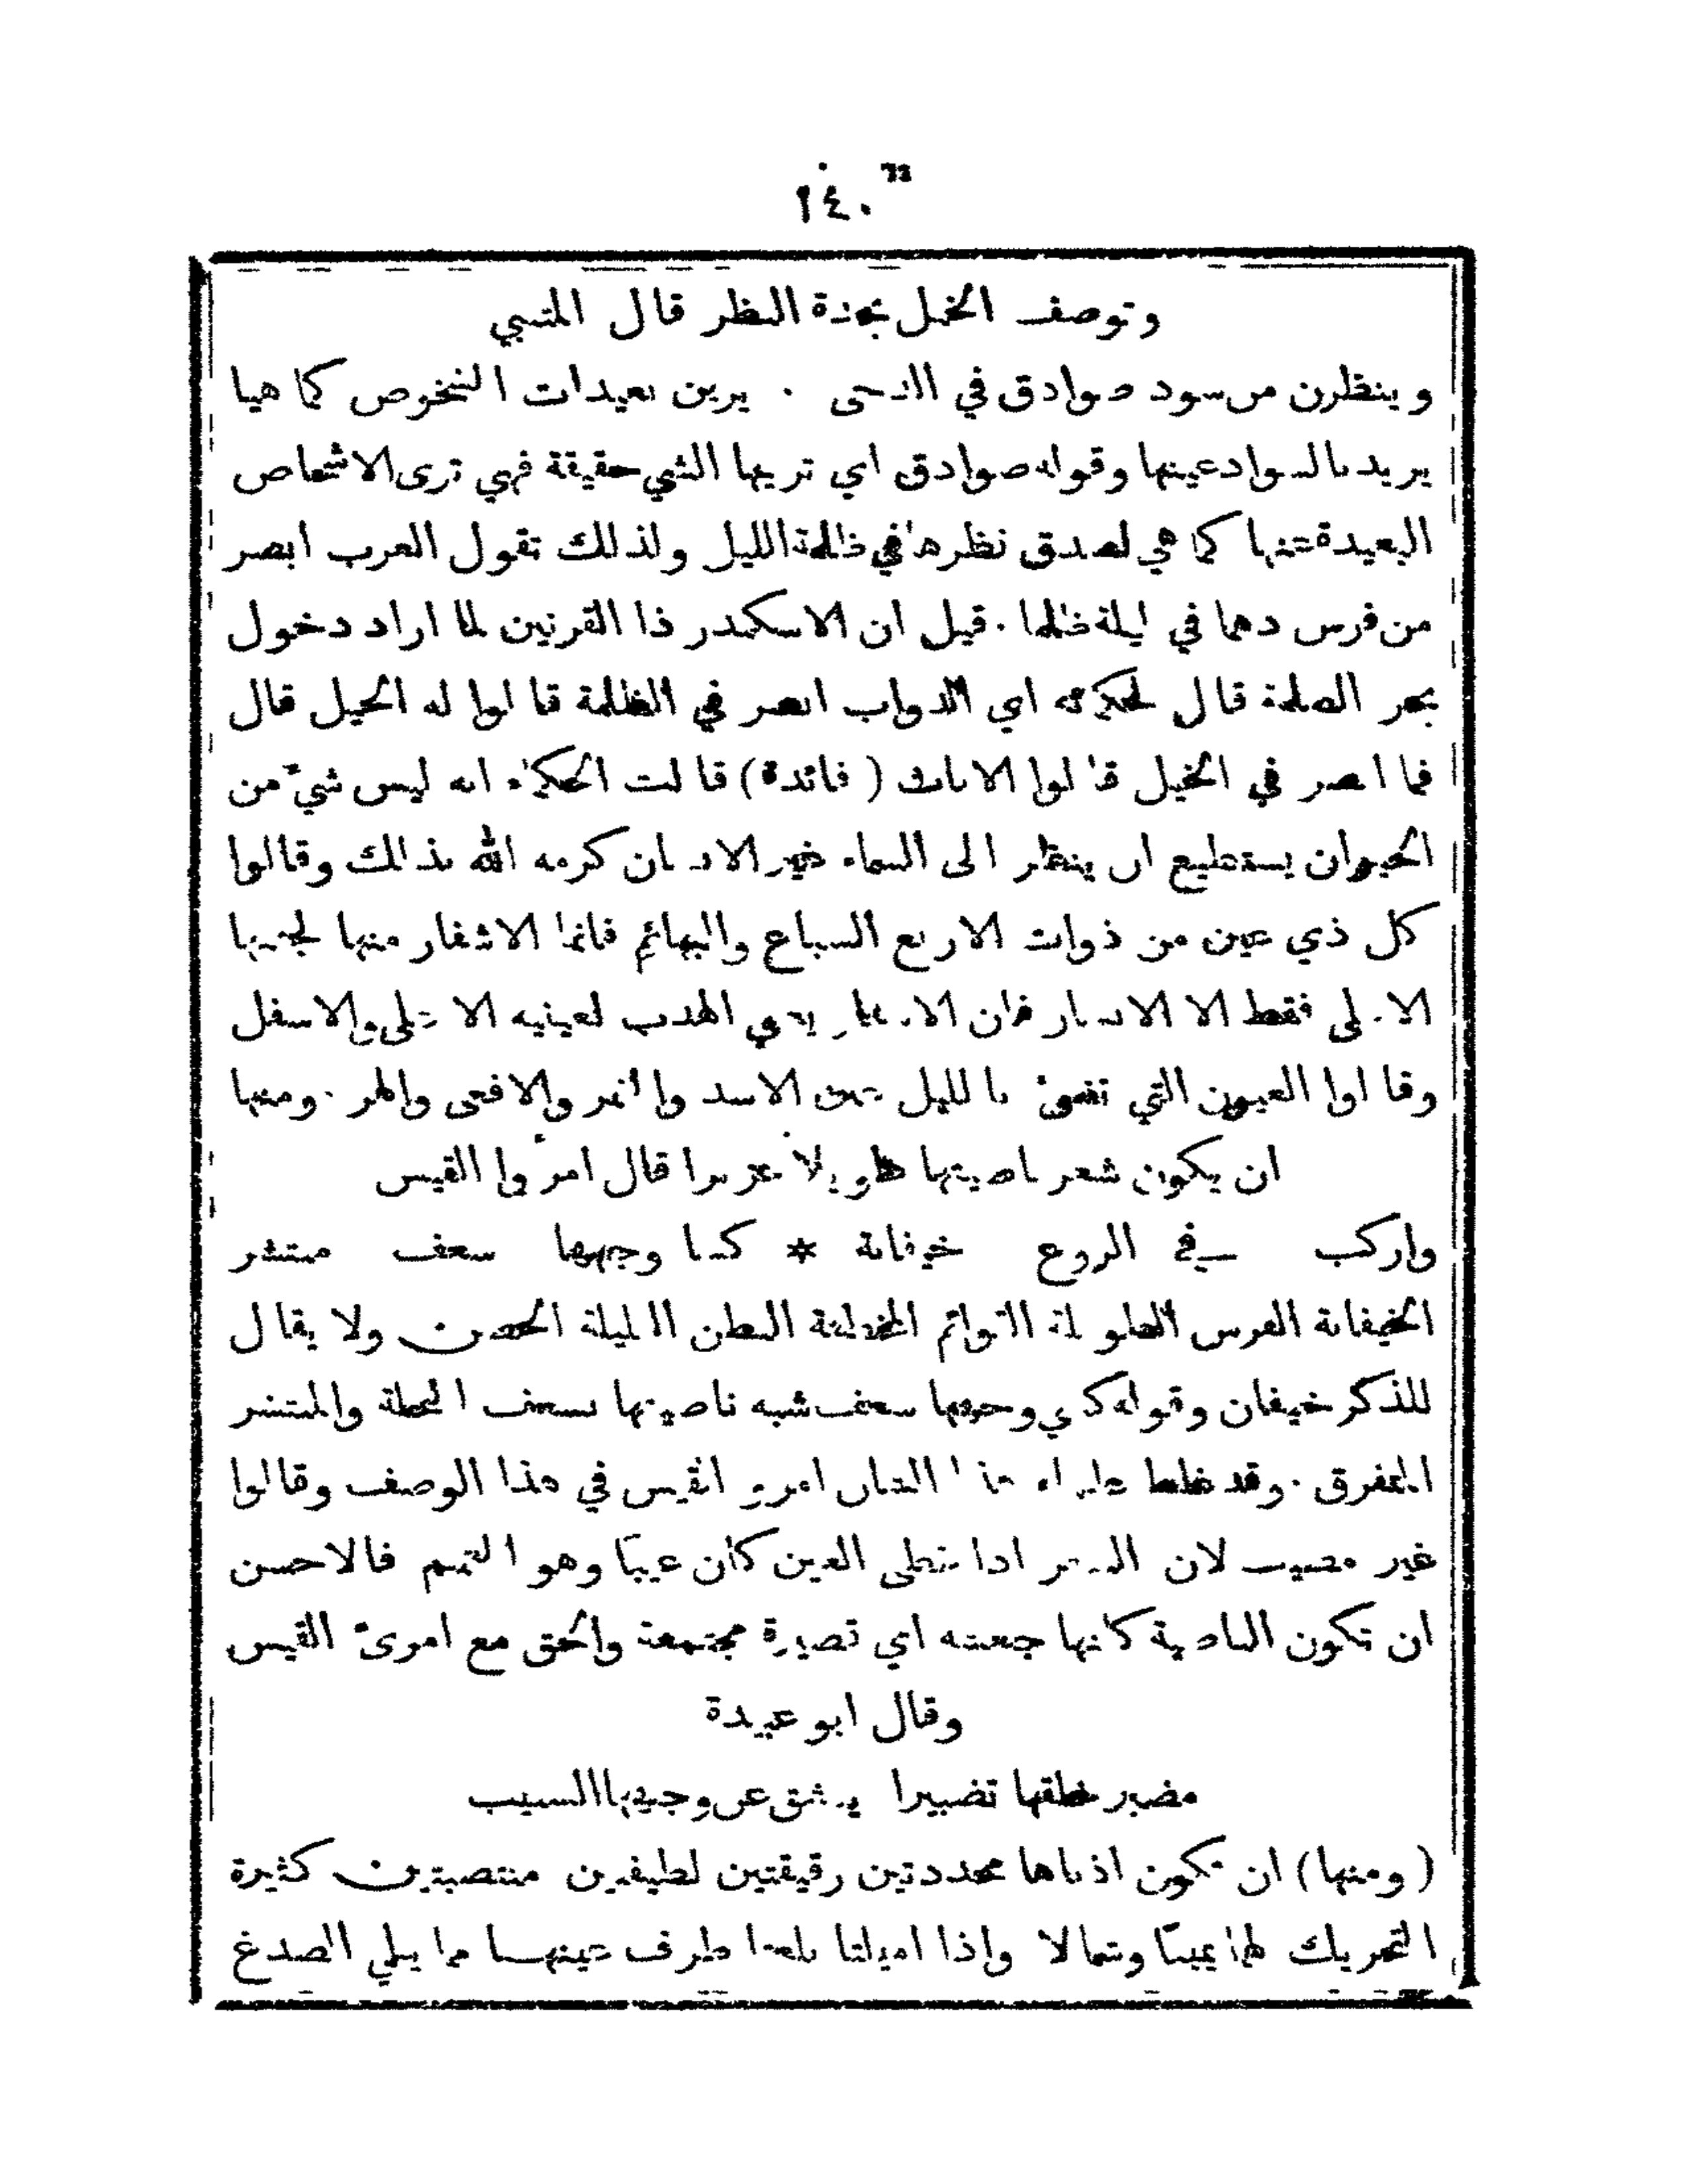 ١٤٠
وتوصف الخيل بحدة النظر قال المتنبي
وينظرن من سود صوادق في الدجى . يرين بعيدات الشخوص كما هيا
يريد بالسواد عينها وقوله صوادق اي تريها الشي حقيقة فهي ترى الاشخاص
البعيدة عنها كما هي لصدق نظرها في ظلمة الليل ولذلك تقول العرب ابصر
من فرس دهما في ليلة ظلما . قيل ان الاسكندر ذا القرنين لما اراد دخول
بحر الظلمة قال لحكمائه اي الدواب ابصر في الظلمة قالوا له الخيل قال
فما ابصر في الخيل قالوا الاناث ( فائدة ) قالت الحكماء انه ليس شيء من
الحيوان يستطيع ان ينظر الى السماء غير الانسان كرمه الله بذلك وقالوا
كل ذي عين من ذوات الاربع السباع والبهائم فانما الاشفار منها لجفنها
الاعلى فقط الا الانسان فان الاشفار يعني الهدب لعينيه الاعلى والاسفل
وقالوا العيون التي تضيء بالليل عيون الاسد والنمر والافعى والهر . ومنها
ان يكون شعر ناصيتها طويلا غزيرا قال امرؤا القيس
واركب في الروع خيفانة * كسا وجهها سعف منتشر
الخيفانة الفرس الطويلة القوائم المخطفة البطن القليلة الحضن ولا يقال
للذكر خيفان وقوله كسي وجهها سعف شبه ناصيتها بسعف النخلة والمنتشر
المتفرق . وقد غلط علماء هذا الشان امرء القيس في هذا الوصف وقالوا
غير مصيب لان الشعر اذا غطى العين كان عيبا وهو الغمم فالاحسن
ان تكون الناصية كانها جعثنه اي قصيرة مجتمعة والحق مع امرئ القيس
وقال ابو عبيدة
مضبر خلقها تضبيرا ينشق عن وجهها السبيب
( ومنها ) ان تكون اذناها محددتين رقيقتين لطيفين منتصبتين كثيرة
التحريك لهما يمينا وشمالا واذا اميلتا بلغتا طرف عينهـا مما يـلي الصدغ